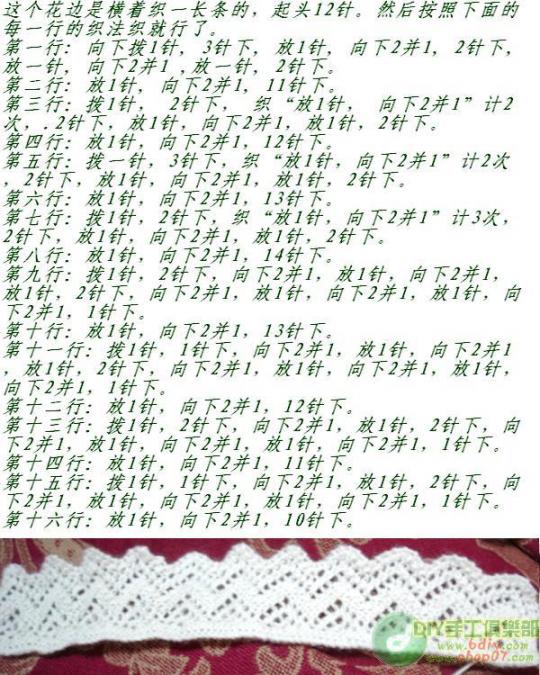 这个花边是横着织一长条的，起头12针。然后按照下面的
每一行的织法织就行了。
第一行：向下拨1针，3针下，放1针，向下2并1，2针下，
放一针，向下2并1 ,放一针，2针下。
第二行：放1针，向下2并1，11针下。
第三行：拨1针， 2针下， 织“放1针， 向下2并1”计2
次，.2针下，放1针，向下2并1，放1针，2针下。
第四行：放1针，向下2并1，12针下。
第五行：拨一针，3针下，织“放1针，向下2并1”计2次
，2针下，放1针，向下2并1，放1针，2针下。
第六行：放1针，向下2并1，13针下。
第七行：拨1针，2针下，织“放1针，向下2并1”计3次，
2针下，放1针，向下2并1，放1针，2针下。
第八行：放1针，向下2并1，14针下。
第九行：拨1针，2针下，向下2并1，放1针，向下2并1，
放1针，2针下，向下2并1，放1针，向下2并1，放1针，向
下2并1，1针下。
第十行：放1针，向下2并1，13针下。
第十一行：拨1针，1针下，向下2并1，放1针，向下2并1
，放1针，2针下，向下2并1，放1针，向下2并1，放1针，
向下2并1，1针下。
第十二行：放1针，向下2并1，12针下。
第十三行：拨1针，2针下，向下2并1，放1针，2针下，向
下2并1，放1针，向下2并1，放1针，向下2并1，1针下。
第十四行：放1针，向下2并1，11针下。
第十五行：拨1针，1针下，向下2并1，放1针，2针下，向
下2并1，放1针，向下2并1，放1针，向下2并1，1针下。
第十六行：放1针，向下2并1，10针下。
DIY手工俱樂部
www.6diy.com
shop07.com